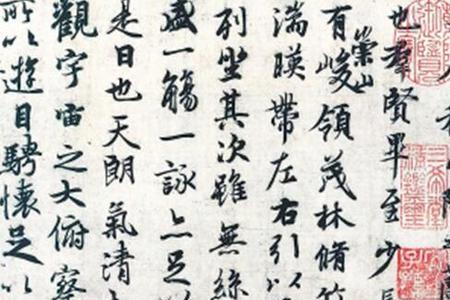 也羣賢畢至少
有崇山峻領茂林脩竹
湍暎帶左右引以
列坐其次雖無絲
盛一觴一詠亦足以
是日也天朗氣清
觀宇宙之大俯察
所以遊目騁懷足以